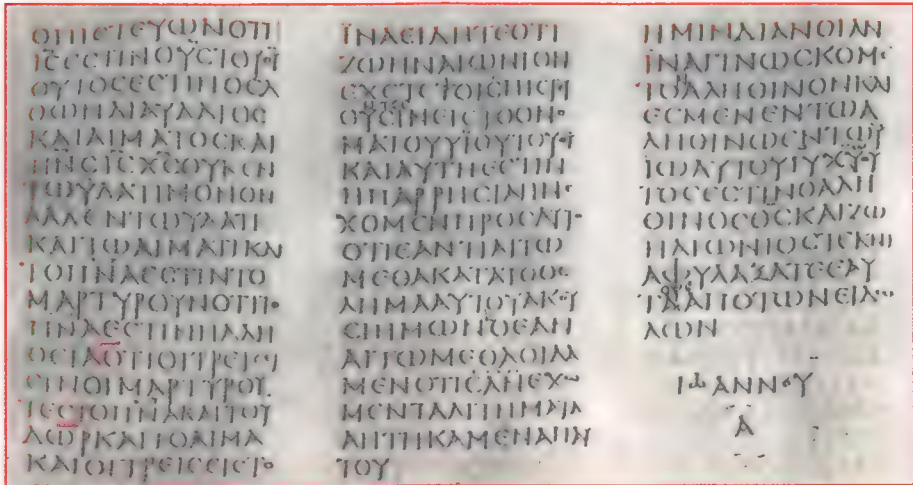 ΟΠΙCΤΕΥΩΝΟΤΙ
ΙCΕCΤΙΝΟΥCΙΟΥΘΥ
ΟΥΤΟCΕCΤΙΝΟΕΛ
ΘΩΝΔΙΑΥΔΑΤΟC
ΚΑΙΑΙΜΑΤΟCΚΑΙ
ΠΝCΙCΧCΟΥΚΕΝ
ΤΩΥΔΑΤΙΜΟΝΟΝ
ΑΛΛΕΝΤΩΥΔΑΤΙ
ΚΑΙΤΩΑΙΜΑΤΙΚΑΙ
ΤΟΠΝΑΕCΤΙΝΤΟ
ΜΑΡΤΥΡΟΥΝΟΤΙΤΟ
ΠΝΑΕCΤΙΝΗΑΛΗ
ΘΕΙΑΟΤΙΟΙΤΡΕΙC
ΕΙCΙΝΟΙΜΑΡΤΥΡΟΥ
ΤΕCΤΟΠΝΑΚΑΙΤΟΥ
ΔΩΡΚΑΙΤΟΑΙΜΑ
ΚΑΙΟΙΤΡΕΙCΕΙCΤΟ
ΪΝΑΕΙΔΗΤΕΟΤΙ
ΖΩΗΝΑΙΩΝΙΟΝ
ΕΧΕΤΕΤΟΙCΠΙCΤΕΥ
ΟΥCΙΝΕΙCΤΟΟΝΟ
ΜΑΤΟΥΥΪΟΥΤΟΥΘΥ
ΚΑΙΑΥΤΗΕCΤΙΝ
ΗΠΑΡΡΗCΙΑΗΝΕ
ΧΟΜΕΝΠΡΟCΑΥΤΟ
ΟΤΙΕΑΝΤΙΑΙΤΩ
ΜΕΘΑΚΑΤΑΤΟΘΕ
ΛΗΜΑΑΥΤΟΥΑΚΟΥ
ΕΙΗΜΩΝΟΕΑΝ
ΑΙΤΩΜΕΘΑΟΙΔΑ
ΜΕΝΟΤΙΕΑΝΕΧΩ
ΜΕΝΤΑΑΙΤΗΜΑΤΑ
ΑΗΤΗΚΑΜΕΝΑΠΑΥ
ΤΟΥ
ΗΜΙΝΔΙΑΝΟΙΑΝ
ΙΝΑΓΙΝΩCΚΟΜΕ
ΤΟΑΛΗΘΙΝΟΝΚΑΙ
ΕCΜΕΝΕΝΤΩΑ
ΛΗΘΙΝΩΕΝΤΩΥ
ΙΩΑΥΤΟΥΙΥΧΥΟΥ
ΤΟCΕCΤΙΝΟΑΛΗ
ΘΙΝΟCΘCΚΑΙΖΩ
ΗΑΙΩΝΙΟCΤΕΚΝΙ
ΑΦΥΛΑΞΑΤΕΕΑΥ
ΤΑΑΠΟΤΩΝΕΙΔΩ
ΛΩΝ
ΙΩΑΝΝΟΥ
Α